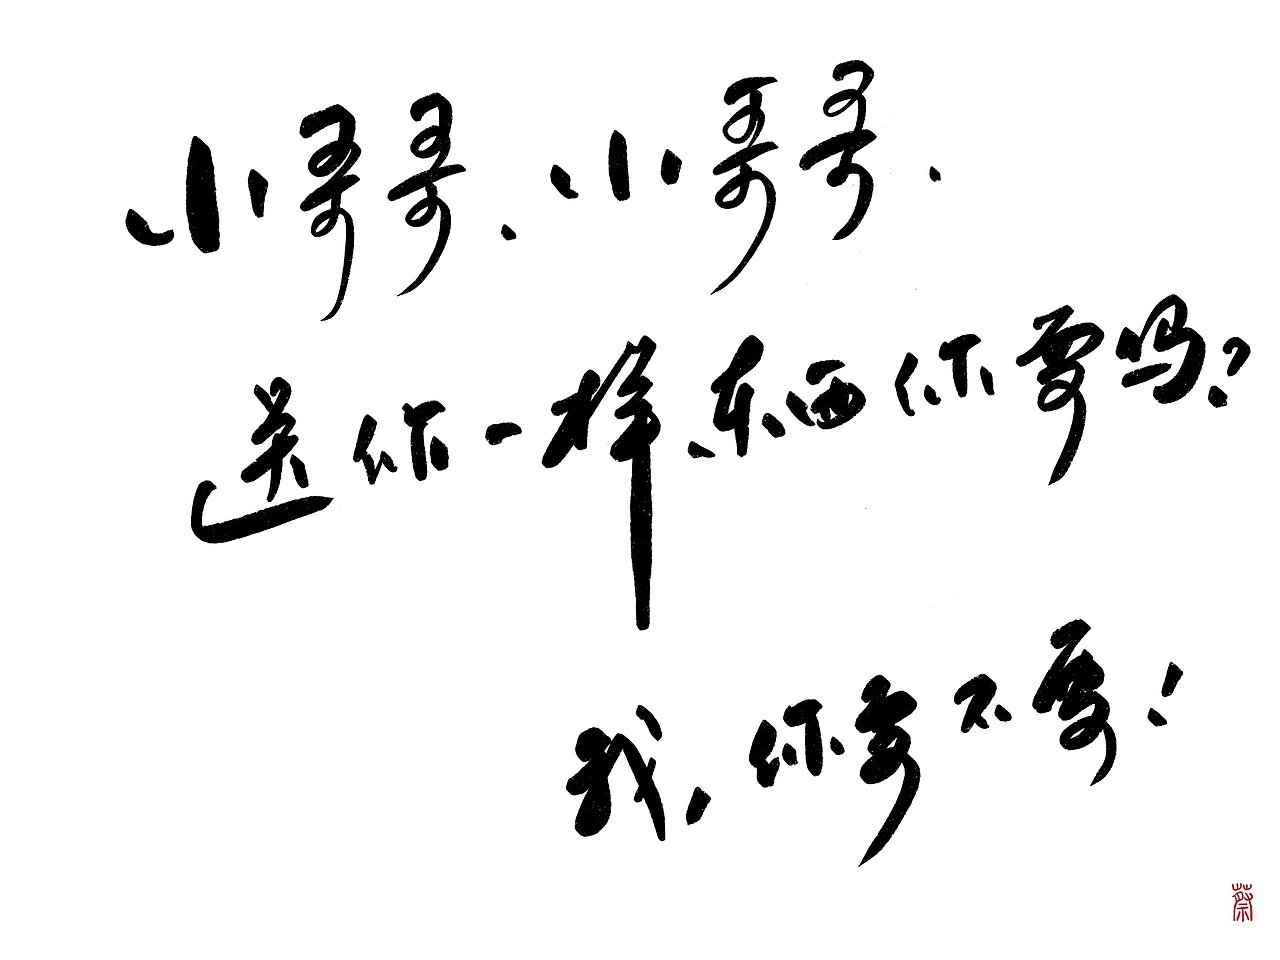 小哥哥、小哥哥、
送你一样东西你要吗?
我,你要不要!
蔡